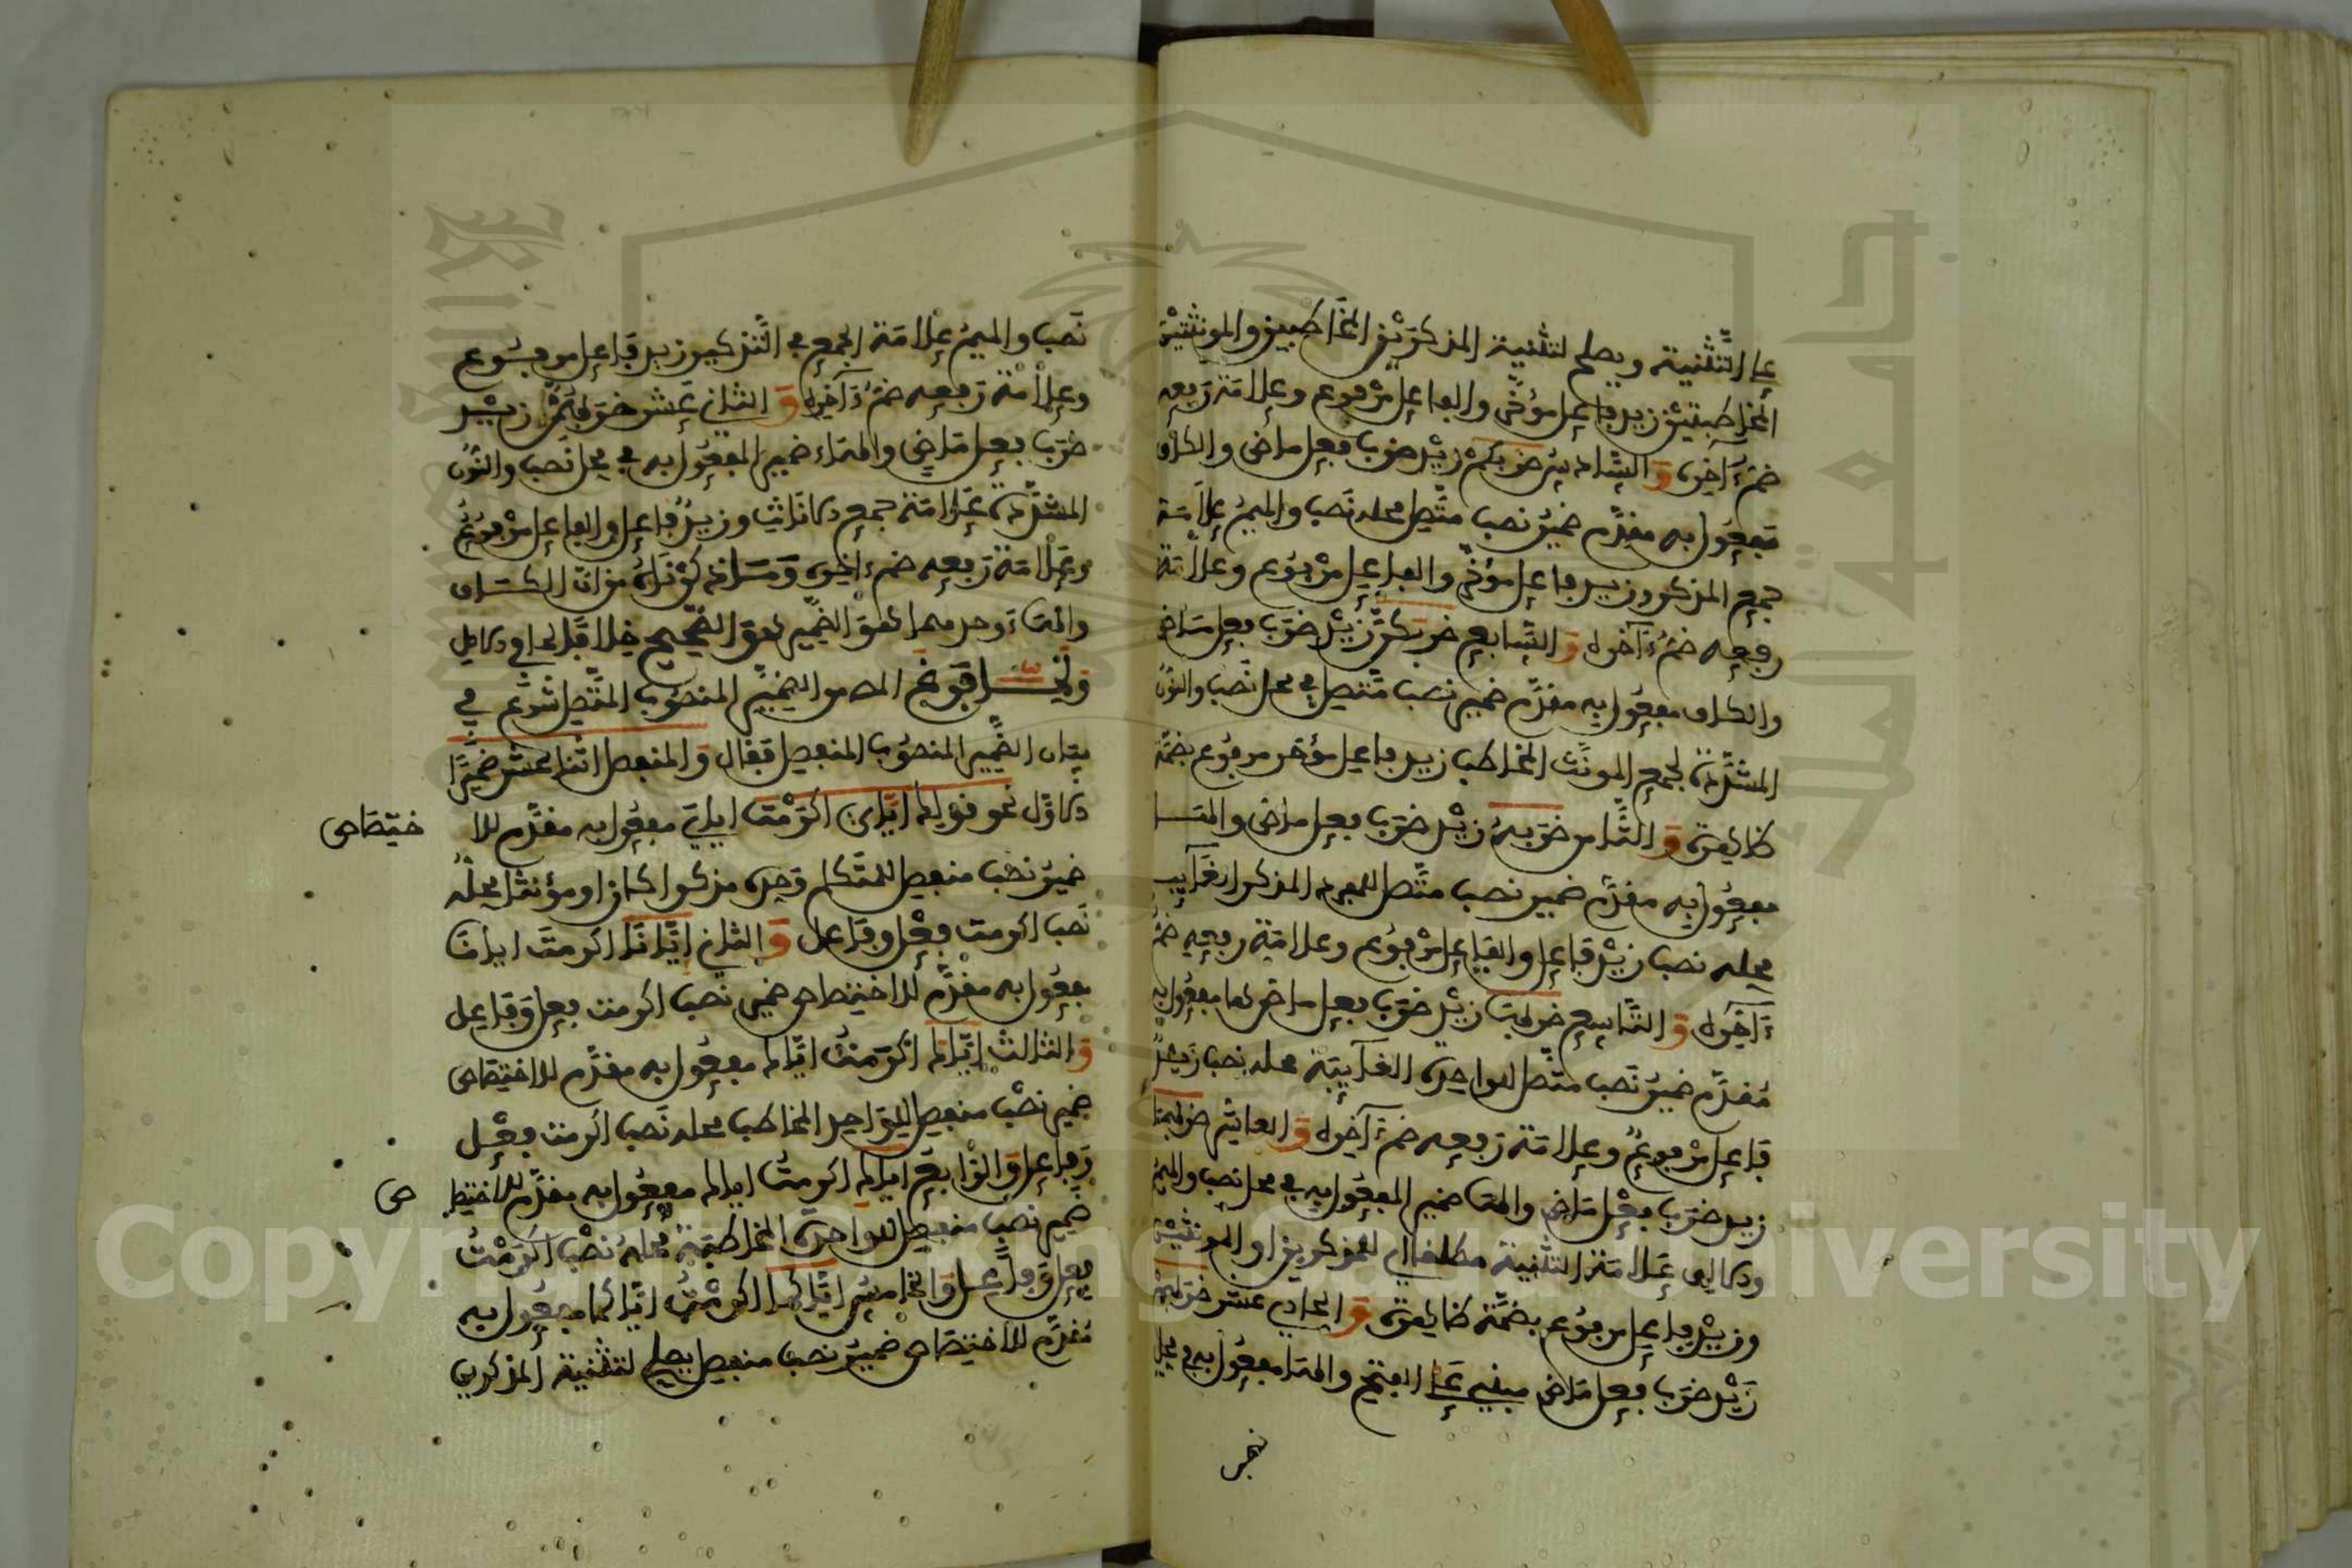 على التَّثْنِية ويصلح لتثنية المذكرَيْنِ المخاطبين والمونثتين
المخاطبتيْن زيد فاعل مؤخَّر والفاعل مرْفوع وعلامَة رَفعه
ضمّ ءَاخره وَ السَّادِسُ ضربَكُمْ زيْد ضرب فعل ماض والكاف
مَفعُول به مقدَّم ضميرُ نصب متَّصِل محله نَصب والميمُ علاَمَة
جمع المذكر وزيد فاعل مؤخّر والفاعِل مرْفوع وعلاَمَة
رفعه ضمُّ ءَاخره وَ السَّابع ضربَكنَّ زيْد ضرَب فعل مَاض
والكاف مفعُول به مقدَّم ضمير نصب مُتَّصِل في محل نَصب والنّونُ
المشدَّدة لجمع المونَّث المخاطب زيد فاعل مؤخر مرفوع بضمَّة
ظاهرة وَ الثَّامن ضرَبهُ زيْد ضرَب فعل ماض والهَا
مفعُول به مقدَّم ضمير نصب متَّصل للمفرد المذكر الغَآيب
محله نصب زيْد فَاعل والفَاعل مرْفوع وعلامَة رفعه ضمُّ
ءَاخره وَ التَّاسِع ضربهَا زيْد ضرَب فعل ماض لها مفعُول به
مُقدَّم ضميرُ نَصب متَّصل للواحدة الغَآيبَة محله نصب زيدٌ
فَاعِل مرْفوعٌ وعلامَة رَفعه ضمّ ءَاخره وَ العاشر ضربهمَا
زيد ضرَب فعْل مَاض والهَا ضمير المفعُول به في محل نصب والميمُ
والالف عَلامَة التثْنية مطلقا اي للمذكرين او المونثتين
وزيْد فاعِل مرفوع بضمَّة ظاهرة وَ الحادي عشر ضرَبهُمْ
زَيْد ضرَب فعل مَاض مبني عَلى الفتح والهَا مفعُول به في محل
نصب
نَصب والميمُ علامَة الجمع في التَّذكير زيد فَاعل مرفوع
وعلاْمَة رَفعه ضمُّ ءَاخره وَ الثاني عَشر ضرَبهُنَّ زيْد
ضرَب فعل مَاضٍ والهَاء ضمير المفعُول به في محل نَصب والنُّون
المشدَّدة عَلامَة جمع الاناث وزيدٌ فاعل والفاعل مرْفوعٌ
وعَلامَة رَفعه ضمّ ءَاخره وَمَا ذكرْنَاهُ من انَّ الكَاف
والهَاء وحدهما هوَ الضَّمير هوَ الصَّحِيح خلافًا لمَا في الاصل
وَلمَّا فرَغ المص من الضَّميرِ المنصُوب المتَّصل شرَع في
بيَان الضَّمير المنصُوب المنفصِل فَقال وَالمنفصل اثْنا عشر ضميرًا
الاوَّل نحو قولك ايَّايَ اكرَمْتَ ايايَ مفعُول به مقدَّم للا
ختِصَاص
ضميرُ نصْب منفصل للمتَكلم وَحده مذكرا كان او مؤنثا محلّه
نَصب اكرمت فعْل وفَاعل وَ الثاني ايَّانَا اكرمتَ ايانَا
مفعُول به مقْدَّم للاختصَاص ضمير نصب اكرمت فعل وَفَاعل
وَ الثالث ايَّاكَ اكرَمتُ ايَّاك مفعُول به مقدَّم للاختِصَاص
ضمير نصْب منفصل للوَاحِد المخاطب محله نَصب اكرمت فعْل
وَفاعل وَ الرَّابعُ ايَاكِ اكرمتُ اياك مفعُول به مقدَّم للاختصا
ص
ضمير نصب منفصِل للوَاحدة المخاطبَة محلهُ نصْب اكرَمْتُ
فعل وَفَاعِل وَ الخامسُ ايَّاكُمَا اكرمْتُ ايَّاكما مفعُول به
مُقدَّم للاختِصَاص ضميرُ نصب منفصِل يصلح لتثنية المذكرين